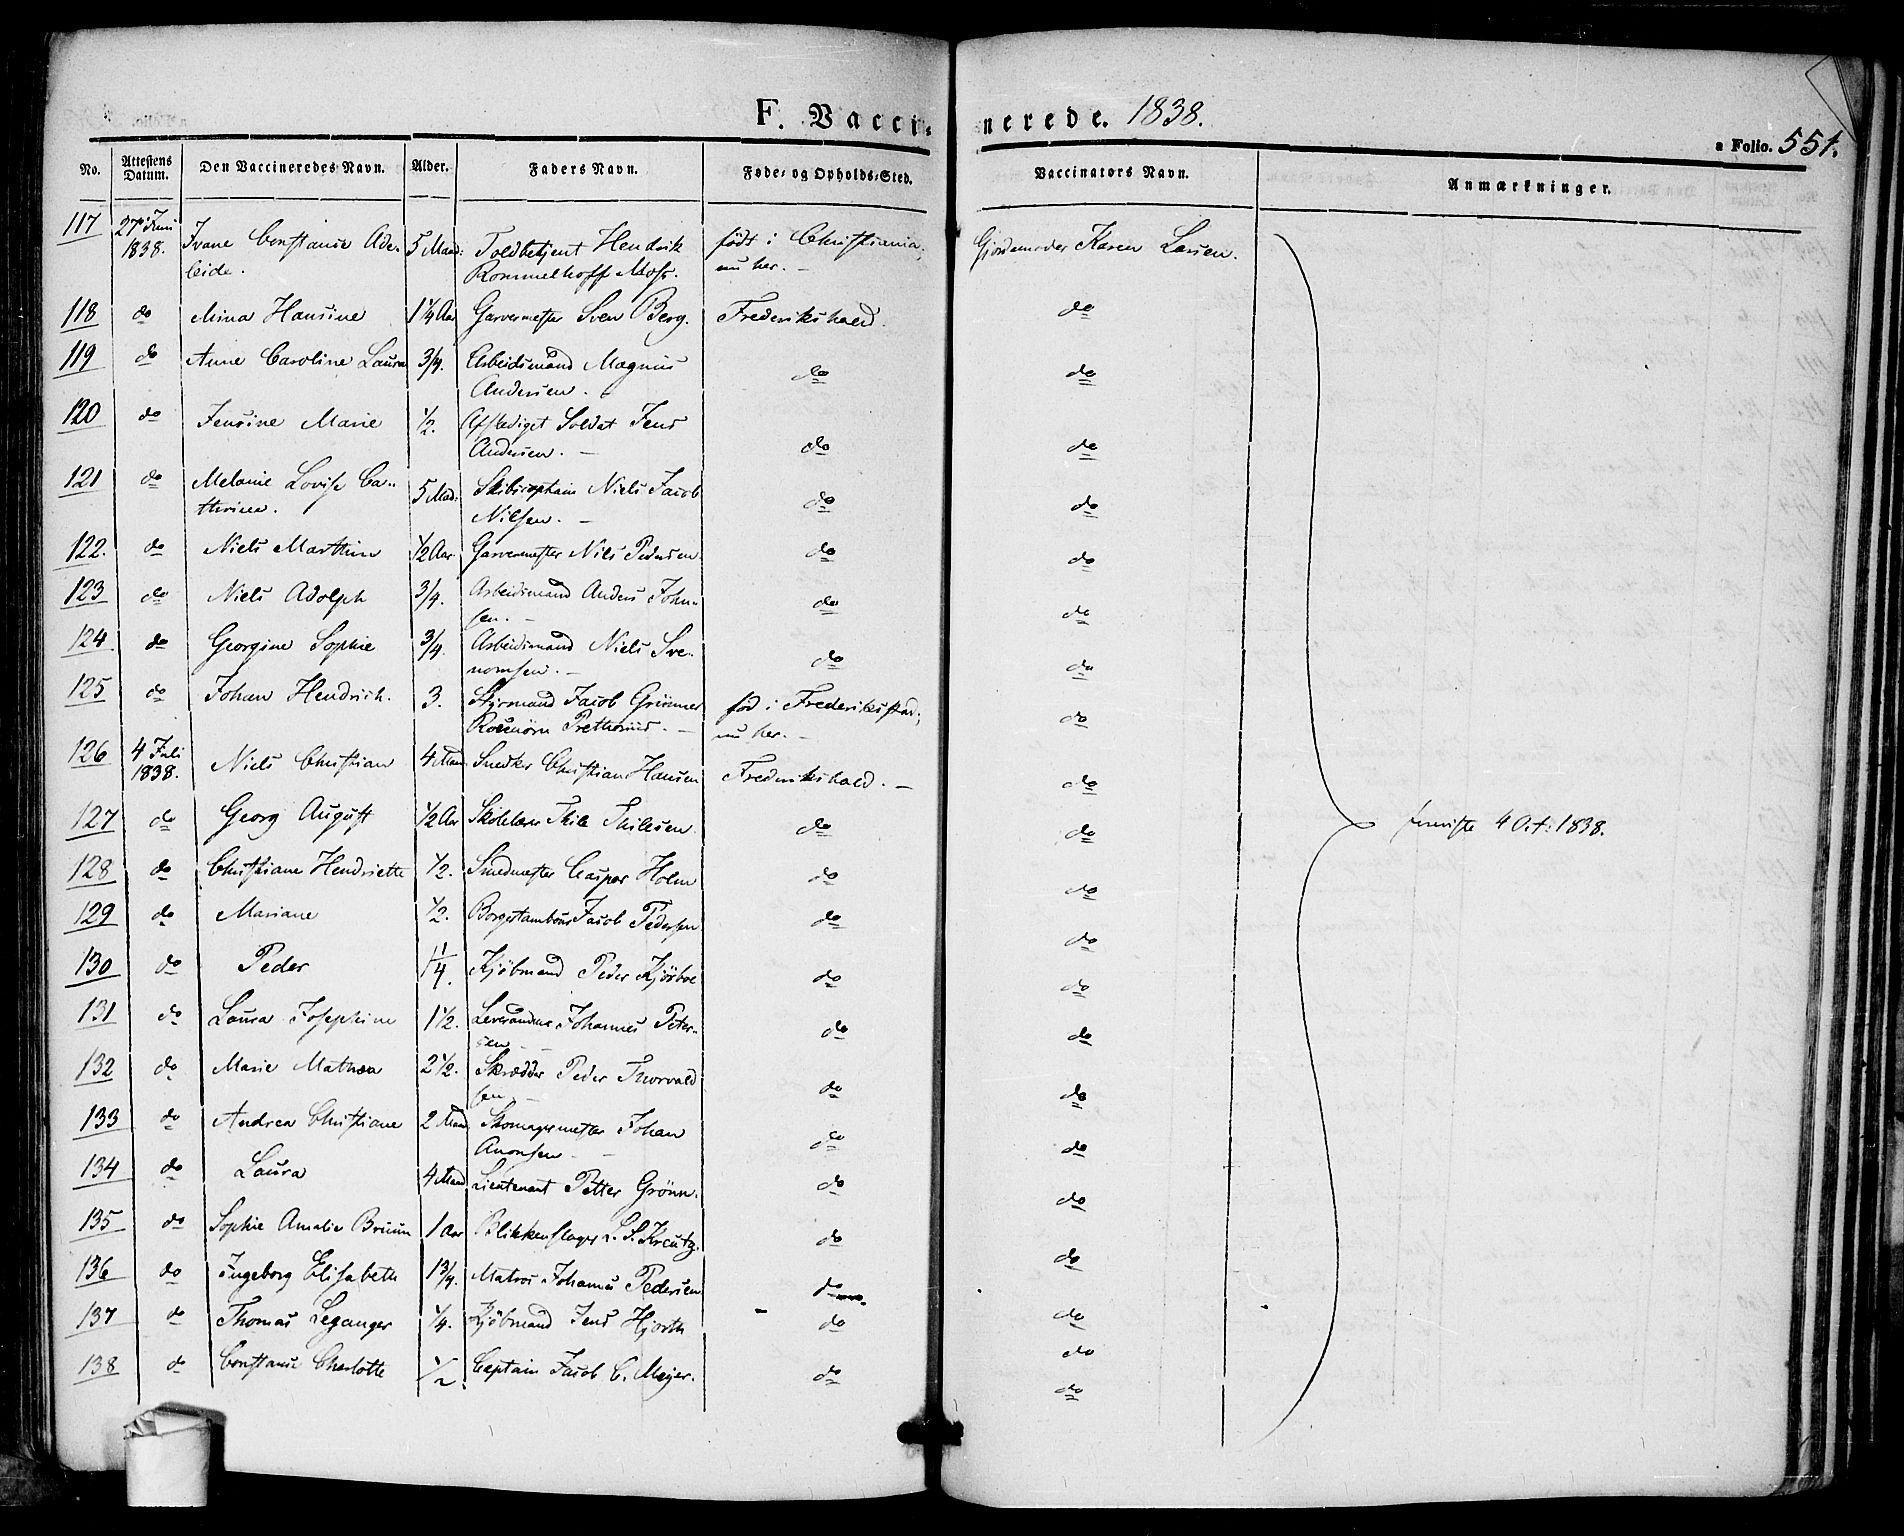 F. Vaccinerede. 1838.
a Folio. 551.
No. Attestens Datum. Den Vaccineredes Navn. Alder. Faders Navn. Føde- og Opholds-Sted. Vaccinators Navn. Anmærkninger.
117 27 Juni 1838. Ivane Constance Ade- 5 Maan: Toldbetjent Hendrik født i Christiania, Gjordemoder Karen Larsen.
leide. Rommelhoff Moss. nu her. -
118 do Mina Hansine 1 1/4 Aar Garvermester Sven Berg. Frederikshald. do
119 do Anne Caroline Laura 3/4. Arbeidsmand Magnus do do
Andersen. -
120 do Jensine Marie 1/2. Afskediget Soldat Jens do do
Andersen. -
121 do Melanie Lovise Ca- 5 Maa: Skibscaptain Niels Jacob do do
thrine. Nilsen. -
122. do Niels Marthin 1/2 Aar. Garvermester Nils Pedersen do do
123 do Niels Adolph 3/4. Arbeidsmand Anders John- do do
sen. -
124 do Georgine Sophie 3/4. Arbeidsmand Niels Sve- do do
nomsen. -
125 do Johan Hendrich. 3. Jacob Grünner fød i Frederiksstad, do
Rosenørn Prethorius. - nu her. -
126 4 Juli 1838. Niels Christian 4 Maan Snedker Christian Hansen Frederikshald. - do
127 do Georg August 1/2 Aar Skolelærer Thile Thilesen do do
128 do Christiane Hendriette 1/2. Smedmester Casper Holm do do
129 do Mariane 1/2. Borgertambour Jacob Pedersen do do
130 do Peder 1 1/4. Kjøbmand Peder Kjørboe do do
131 do Laura Josephine 1 1/2. Leverandeur Johannes Peter- do do
sen -
132 do Marie Mathea 2 1/2. Skrædder Peder Thorvald do do
sen -
133 do Andrea Christiane 2 Maan Skomagermester Johan do do
Anonsen -
134 do Laura 4 Maan Lieutenant Petter Grønn. do do
135 do Sophie Amalie Bruun 1 Aar Blikkenslager L. S. Kreutz. do do
136 do Ingeborg Elisabeth 1 3/4 Matros Johannes Pedersen do do
137 do Thomas Leganger 1/4. Kjøbmand Jens Hjorth - do do
138 do Constance Charlotte 1/2. Captain Jacob C. Meyer. do do
4 Oct: 1838.